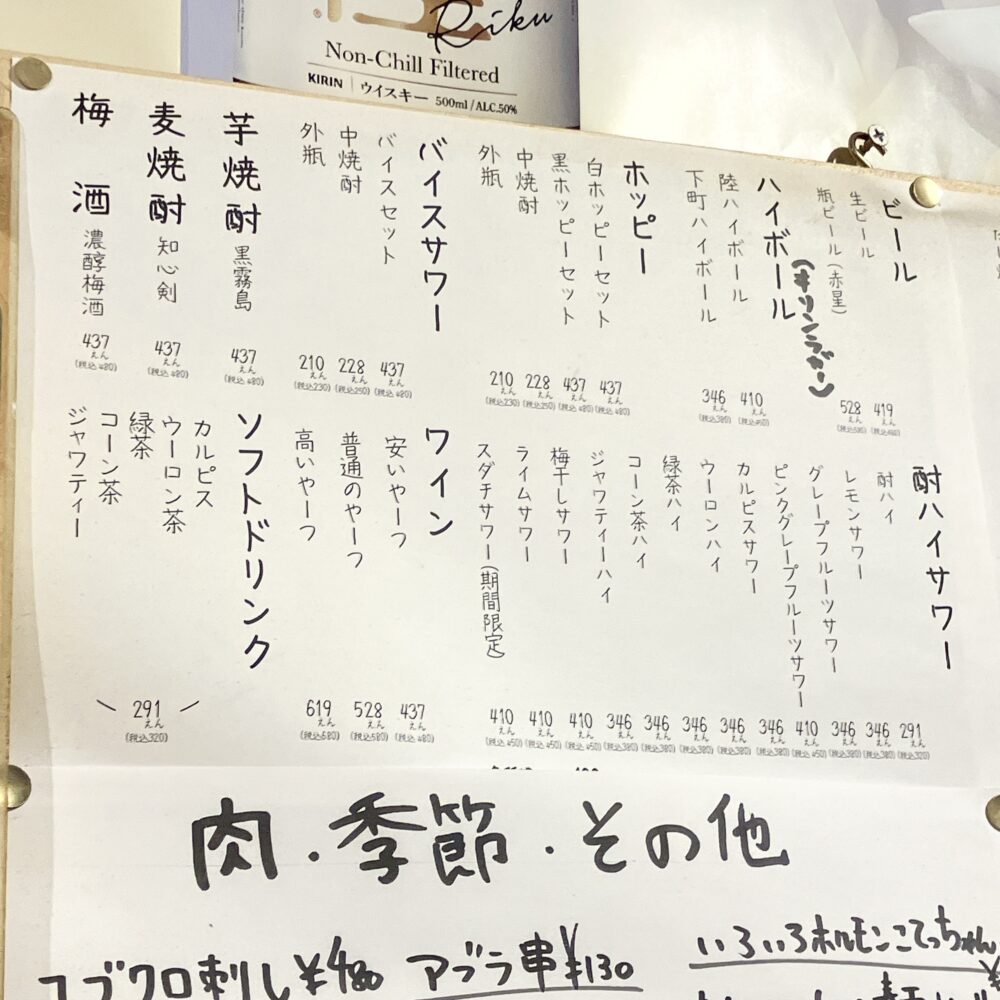 Riku
Non-Chill Filtered
KIRIN ウイスキー 500ml/ALC.50%
ビール
生ビール 419えん (税込460)
瓶ビール(赤星) 528えん (税込580)
(キリンラガー)
ハイボール
陸ハイボール 410えん (税込450)
下町ハイボール 346えん (税込380)
ホッピー
白ホッピーセット 437えん (税込480)
黒ホッピーセット 437えん (税込480)
中焼酎 228えん (税込250)
外瓶 210えん (税込230)
バイスサワー
バイスセット 437えん (税込480)
中焼酎 228えん (税込250)
外瓶 210えん (税込230)
芋焼酎 黒霧島 437えん (税込480)
麦焼酎 知心剣 437えん (税込480)
梅酒 濃醇梅酒 437えん (税込480)
酎ハイサワー
酎ハイ 291えん (税込320)
レモンサワー 346えん (税込380)
グレープフルーツサワー 346えん (税込380)
ピンクグレープフルーツサワー 410えん (税込450)
カルピスサワー 346えん (税込380)
ウーロンハイ 346えん (税込380)
緑茶ハイ 346えん (税込380)
コーン茶ハイ 346えん (税込380)
ジャワティーハイ 346えん (税込380)
梅干しサワー 410えん (税込450)
ライムサワー 410えん (税込450)
スダチサワー(期間限定) 410えん (税込450)
ワイン
安いやーつ 437えん (税込480)
普通のやーつ 528えん (税込580)
高いやーつ 619えん (税込680)
ソフトドリンク
カルピス
ウーロン茶
緑茶
コーン茶
ジャワティー
291えん (税込320)
肉・季節・その他
コブクロ刺し ¥480
アブラ串 ¥130
いろいろホルモンこてっちゃん